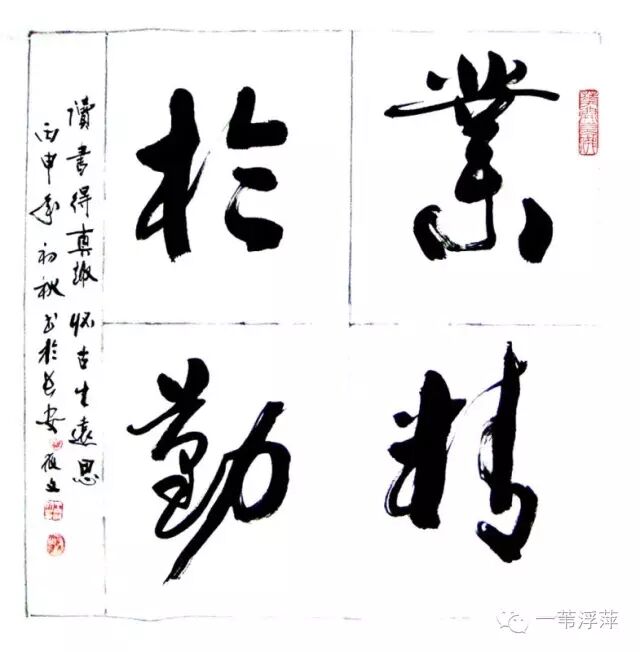 業精
於勤
讀書得真趣 懷古生遠思
丙申年初秋書於長安
一苇浮萍